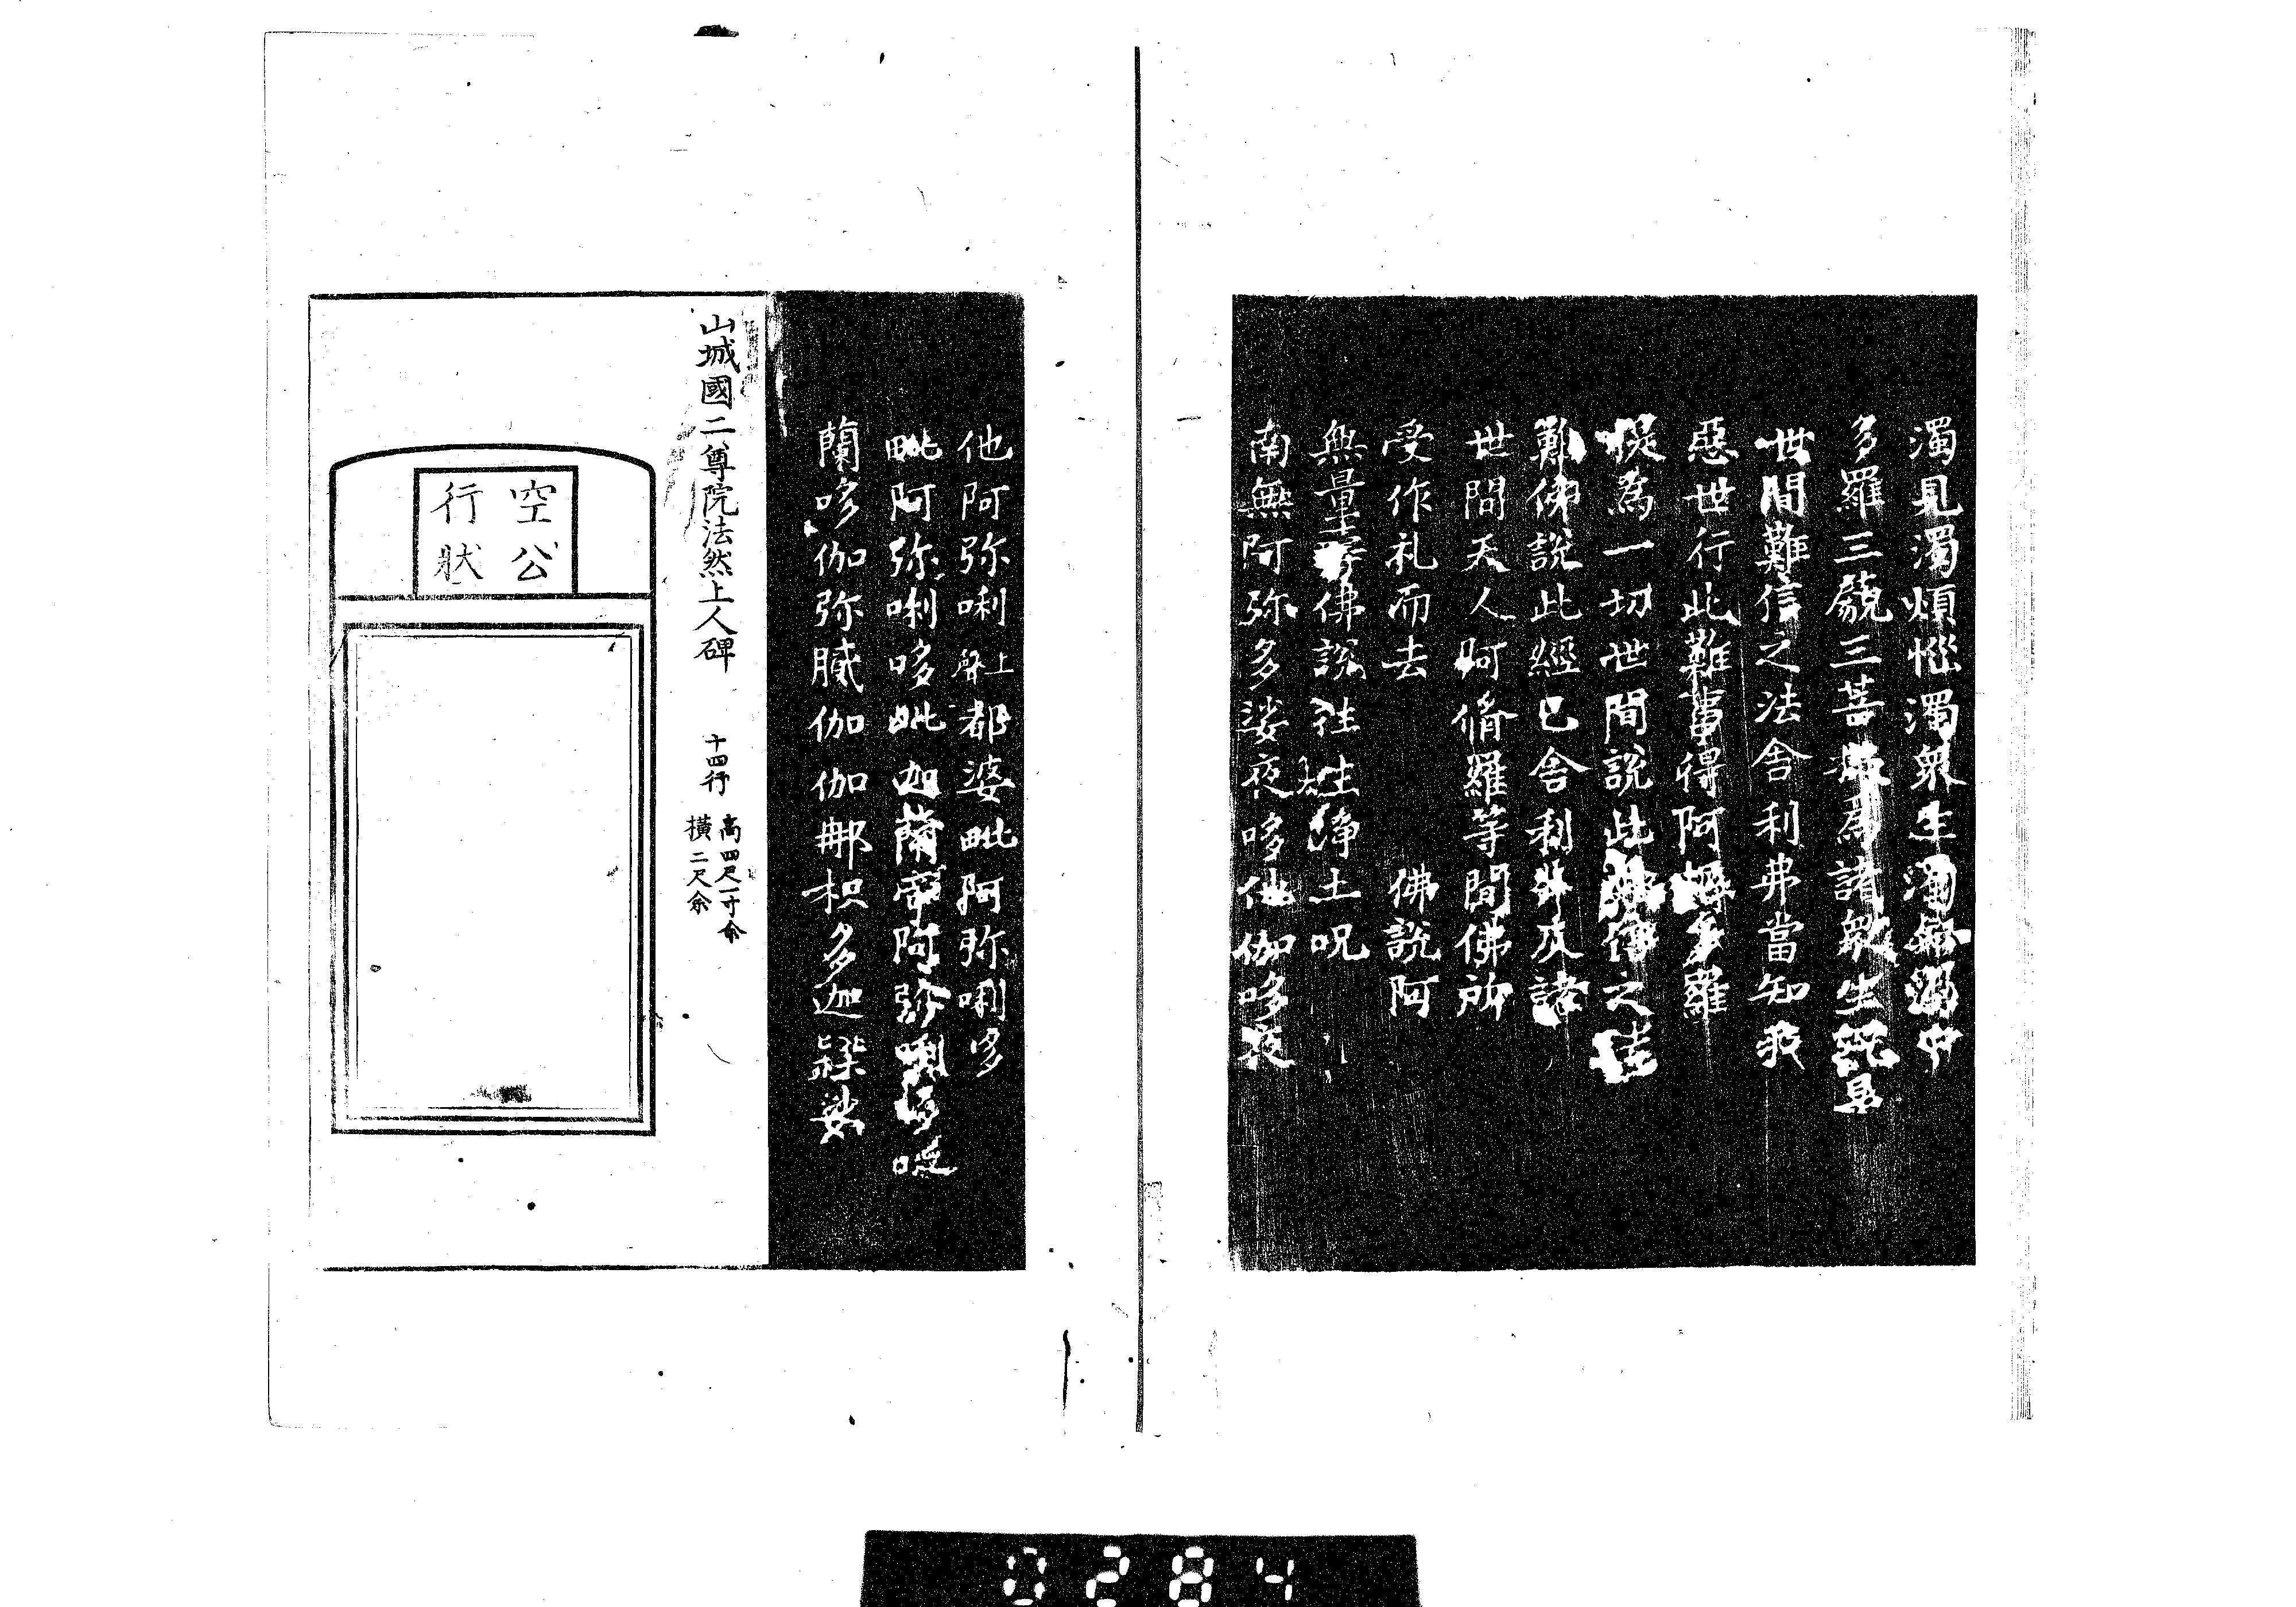 濁見濁煩惱濁衆生濁命濁中
多羅三藐三菩提爲諸衆生説是
世間難信之法舍利弗當知我
惡世行此難事得阿耨多羅
提為一切世間説此難信之法
難佛說此經已舍利弗及諸
世間天人阿脩羅等聞佛所
受作礼而去 佛說阿
無量壽佛說往生淨土呪
南無阿弥多婆夜哆他伽哆夜
他阿弥唎上聲都婆毗阿弥唎哆
毗阿弥唎哆毗迦蘭帝阿弥唎哆
蘭哆伽弥膩伽伽那枳多迦
山城國二尊院法然上人碑 十四行 高四尺一寸余
橫二尺余
空公
行狀
0284